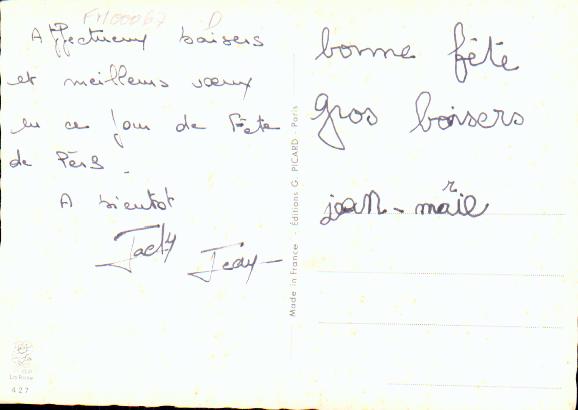 FM00067 D
Affectueux baisers
et meilleurs vœux
en ce jour de Fête
de Pères.
A bientôt
Jacky Jean
bonne fête
gros baisers
jean-marie
Made in France - Éditions G. PICARD - Paris
La Rose
427